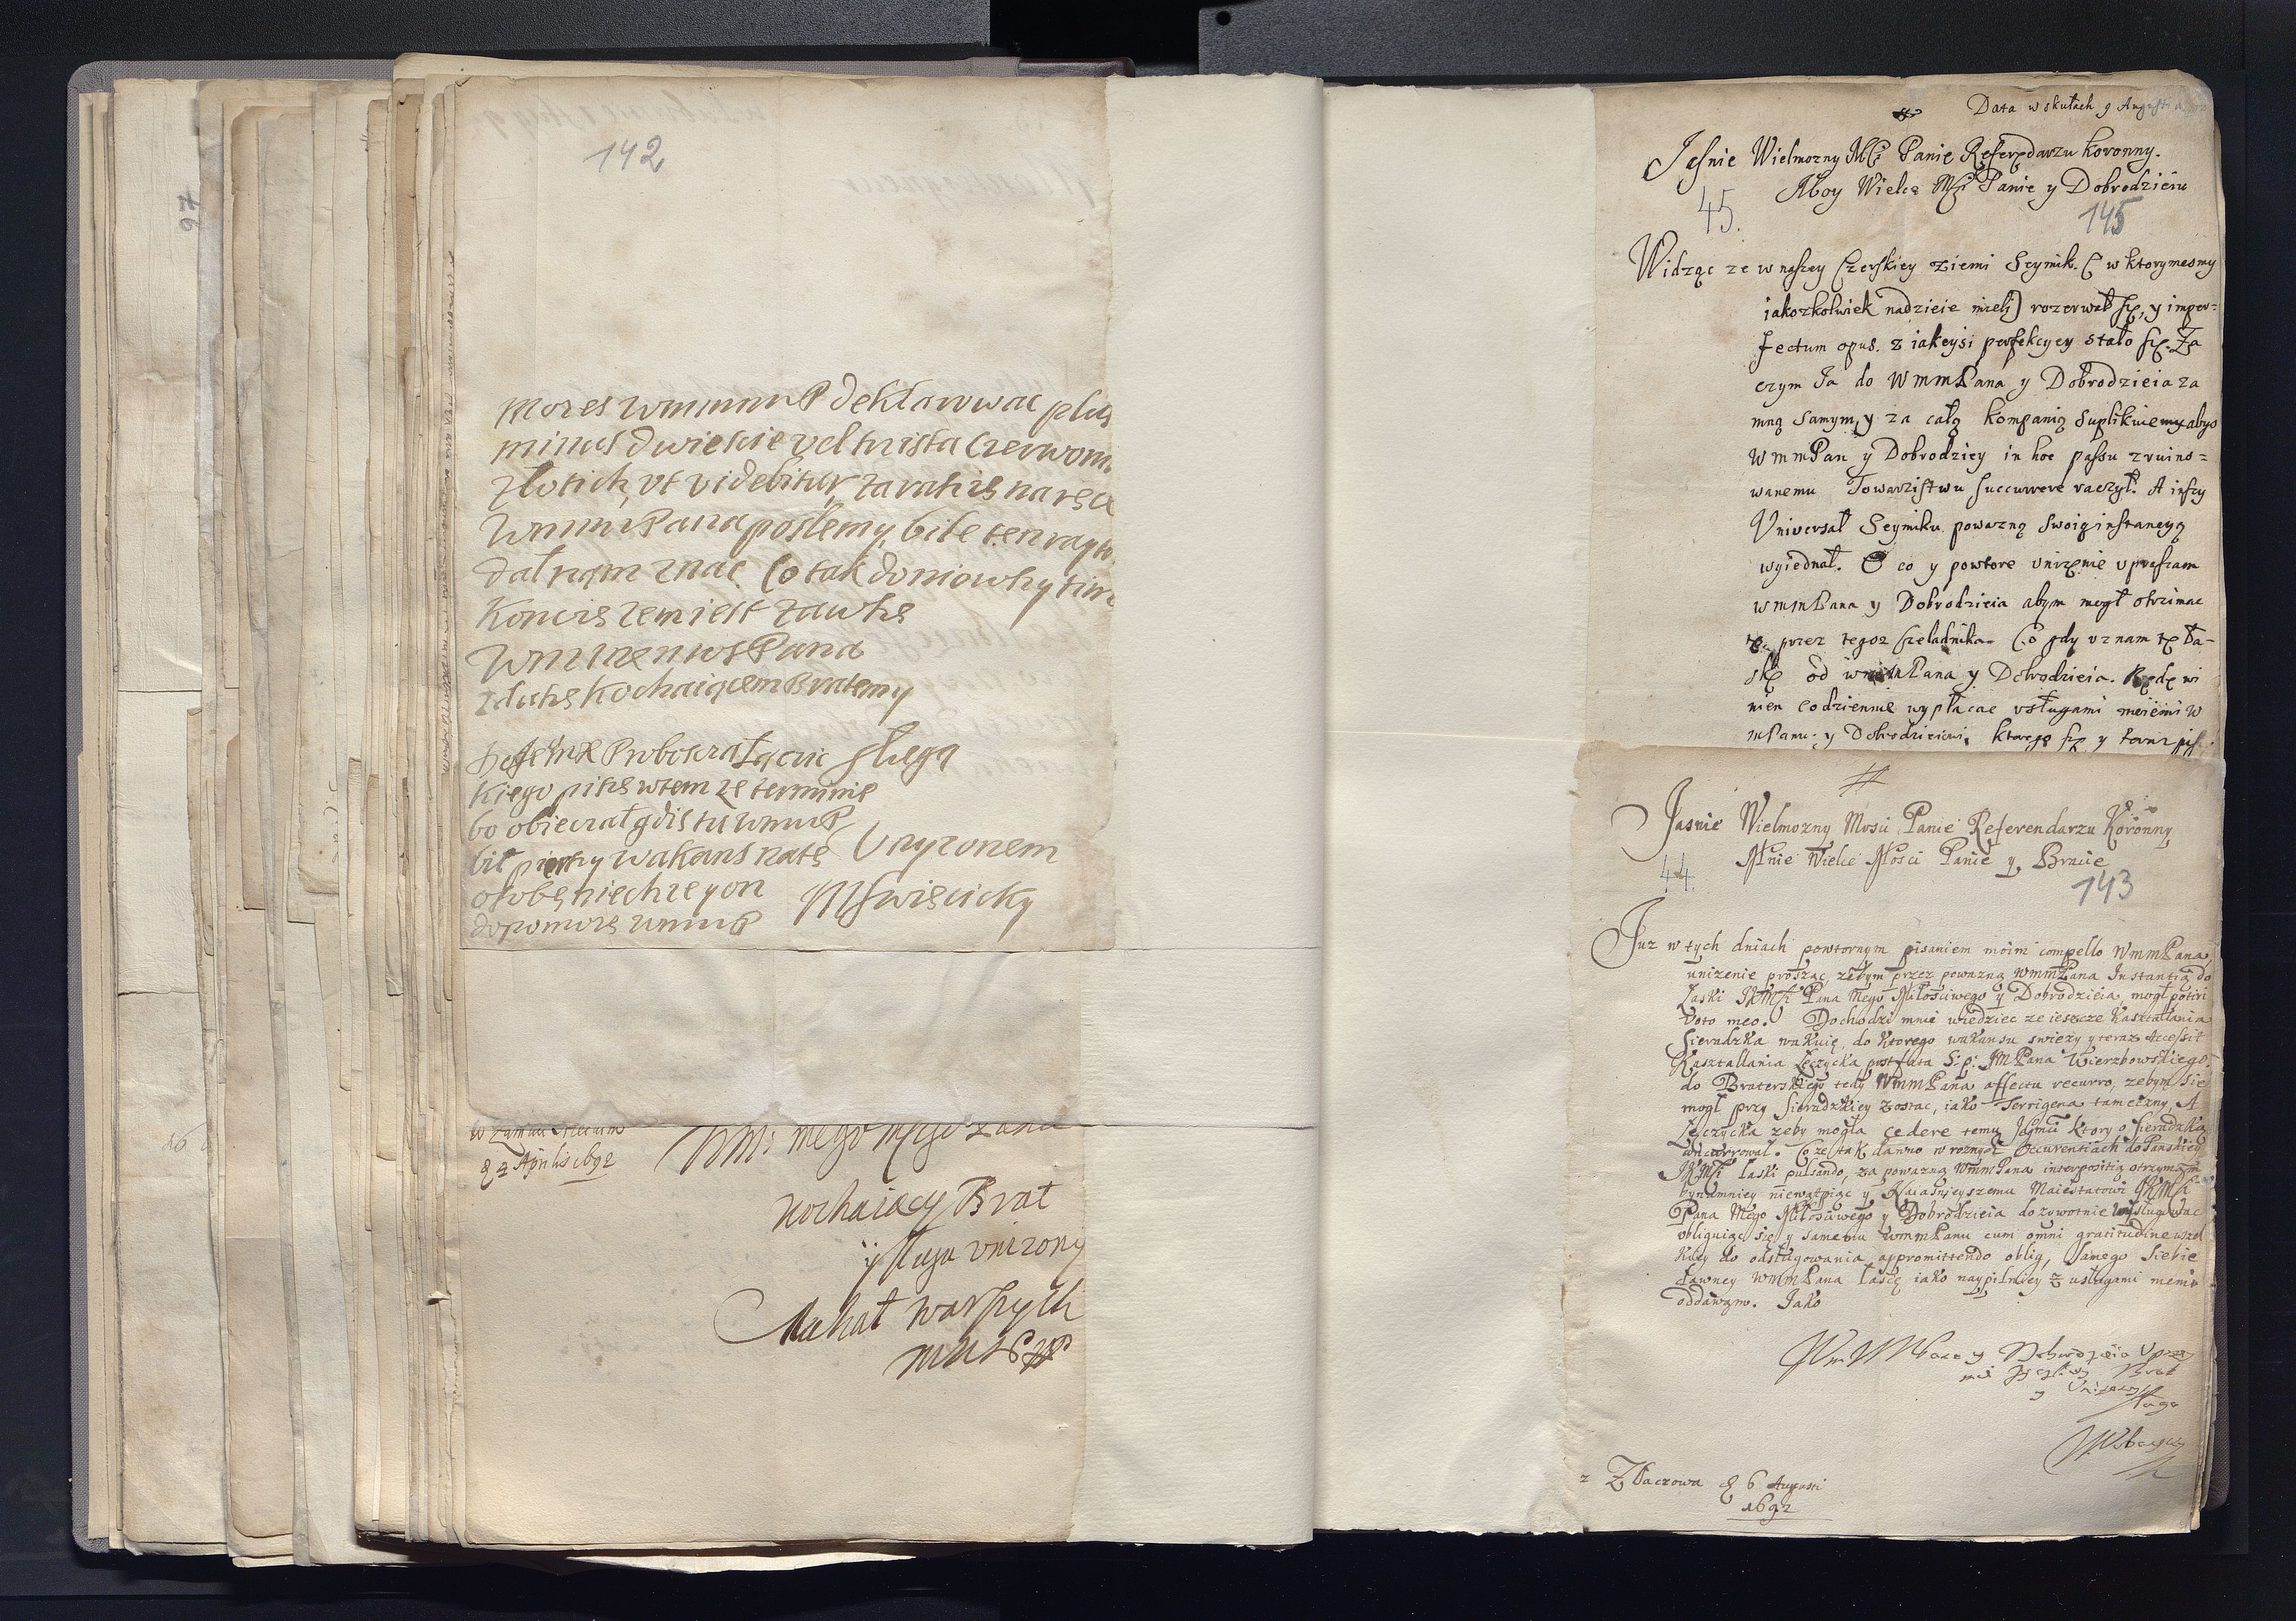 97
142
mozes wmmmP deklarowac plus
minus dwiescie vel trista Czerwoni
złotich, ut videbitur, zarahis na rece
WmmmPana poslemy, bile ten
dał nam znac Co tak domowszy tim
Koncze zem iest zawhe
Pana
z duhe kochaiącem Bratemy
sluga
kiego pihe wtem ze terminie
bo obiecał gdis tu wmmP
bił wakans na te
Unyzonem
osobe niech ze y on
MSwiecicky
dopomoze wmmP
24 Aprilis 1692
mego Pana
kochaiacy Brat
y sługa vnizony
Michał Warszycki
Data w skułach 9 Augusti
Jasnie Wielmozny MCi Panie Referędarzu koronny.
Moy Wielce MCi Panie y Dobrodzieiu
45.
145
Widząc ze w naszey Czerskiey ziemi Seymik. ( w ktorymesmy
iakozkolwiek nadzieie mieli) rozerwał się, y imper=
fectum opus. z iakeysi perfekcyey stało się. Za
czym Ja do WmmPana y Dobrodzieia za
mną samym, y za całą kompanią suplikuiemy abys
WmmPan y Dobrodziey in hoc passu zruino=
wanemu Towarzistwu succurrere raczył. A inszy
Universał Seymiku powazną swoią instancyą
wyiednał. O co y powtore unizenie upraszam
wmmPana y Dobrodzieia abym mogł otrzimac
te przez tegoz Czeladnika. Co gdy uznam tę Ła-
skę od wmmPana y Dobrodzieia. Będę wi
nien codziennie wypłacac usługami meiemi W
mPanu y Dobrodzieiowi, ktorego się y
Jasnie Wielmozny Mosci Panie Referendarzu Koronny
Mnie Wielce Mosci Panie y Bracie
44.
143
Juz w tych dniach powtornym pisaniem moim compello WmmPana,
unizenie prosząc, zebym przez powazną WmmPana Instantią do
Łaski JKMści Pana Mego Miłosciwego y Dobrodzieia, mogł potiri
voto meo. Dochodzi mnie wiedziec ze ieszcze Kasztallania
Sieradzka wakuię, do ktorego wakansu swiezy y teraz Accessit
Kasztallania Łęczycka post fata S: p: JMPana Wierzbowskiego.
do Braterskiego tedy WmmPana affectu recurro, zebym sie
mogł przy Sieradzkiey zostac, iako Terrigena tameczny, A
Łęczycka zeby mogła cedere temu Jmci ktory o Sieradzką
concurrował. Co ze tak dawno w roznych Occurentiach do Panskiey
JKMści łaski pulsando, za powazną WmmPana interpositią otrzymam
bynamniey niewątpiąc y Naiasnieyszemu Maiestatowi JKMści
Pana Mego Miłosciwego y Dobrodzieia dozywotnie wysługowac
obliguiąc się, y samemu WmmPanu cum omni gratitudine wszel
kiey do odsługowania appromittendo oblig, samego siebie
dawney WmmPana łasce iako naypilniey z usługami memi
oddawam. Jako
Brat
y Unizony
Sługa
z Zbaczowa d 6 Augusti
1692